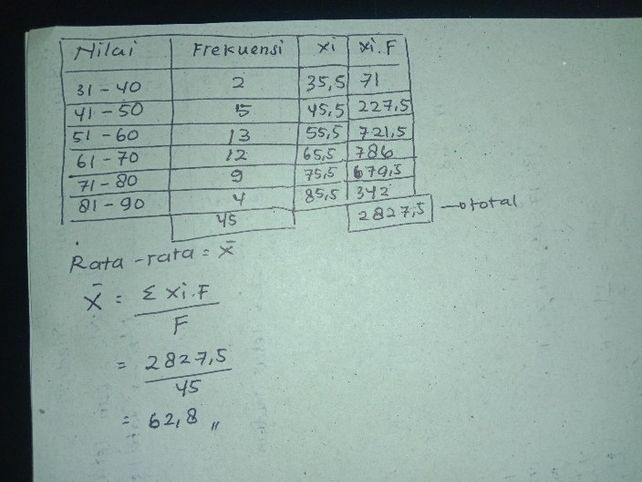 Nilai Frekuensi xi xi.F
31-40 2 35,5 71
41-50 5 45,5 227,5
51-60 13 55,5 721,5
61-70 12 65,5 786
71-80 9 75,5 679,5
81-90 4 85,5 342
45 2827,5 → total
Rata-rata = x̄
X̄ = Σ xi.F / F
= 2827,5 / 45
= 62,8 „